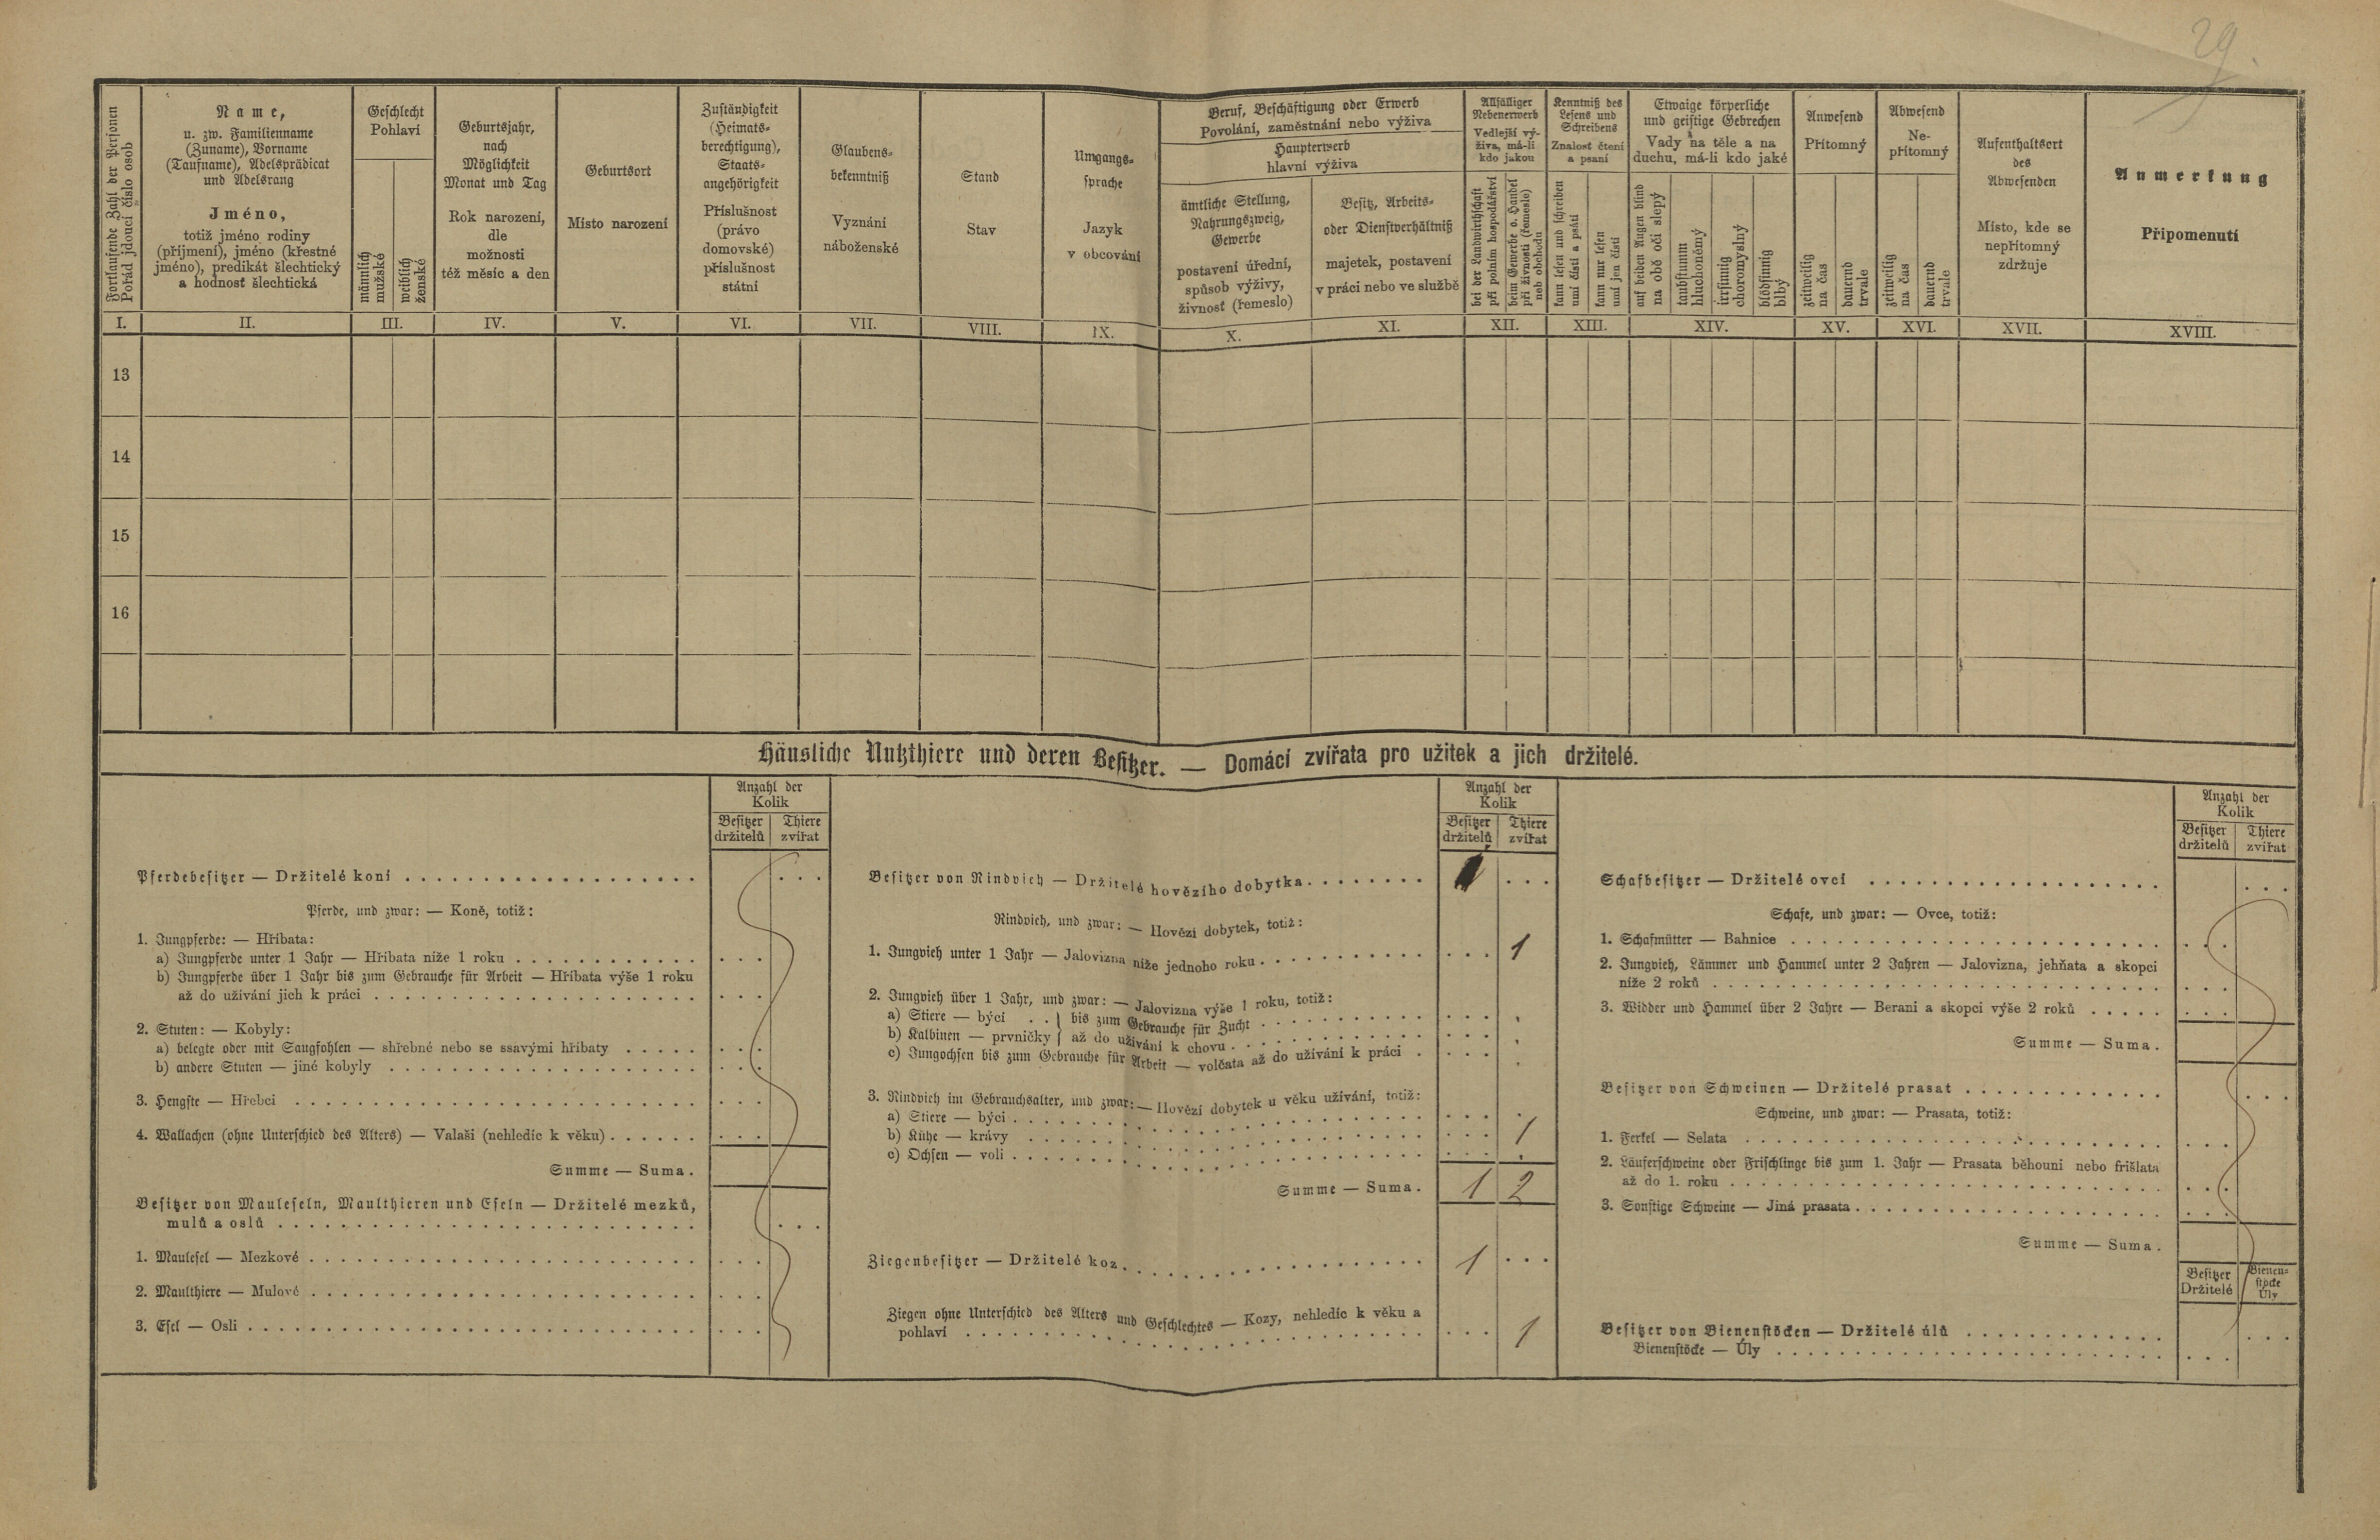 29.
Fortlaufende Zahl der Personen
Pořád jdoucí číslo osob
Name,
u. zw. Familienname
(Zuname), Vorname
(Taufname), Adelsprädicat
und Adelsrang
Jméno,
totiž jméno rodiny
(příjmení), jméno (křestné
jméno), predikát šlechtický
a hodnosť šlechtická
Geschlecht
Pohlaví
männlich
mužské
weiblich
ženské
Geburtsjahr,
nach
Möglichkeit
Monat und Tag
Rok narození,
dle
možnosti
též měsíc a den
Geburtsort
Místo narození
Zuständigkeit
(Heimats-
berechtigung),
Staats-
angehörigkeit
Příslušnost
(právo
domovské)
příslušnost
státní
Glaubens-
bekenntniß
Vyznání
náboženské
Stand
Stav
Umgangs-
sprache
Jazyk
v obcování
Beruf, Beschäftigung oder Erwerb
Povolání, zaměstnání nebo výživa
Haupterwerb
hlavní výživa
ämtliche Stellung,
Nahrungszweig,
Gewerbe
postavení úřední,
spůsob výživy,
živnosť (řemeslo)
Besitz, Arbeits-
oder Dienstverhältniß
majetek, postavení
v práci nebo ve službě
Allfälliger
Nebenerwerb
Vedlejší vý-
živa, má-li
kdo jakou
bei der Landwirthschaft
při polním hospodářství
beim Gewerbe o. Handel
při živnosti (řemesle)
neb obchodu
Kenntniß des
Lesens und
Schreibens
Znalosť čtení
a psaní
kann lesen und schreiben
umí čísti a psáti
kann nur lesen
umí jen čísti
Etwaige körperliche
und geistige Gebrechen
Vady na těle a na
duchu, má-li kdo jaké
auf beiden Augen blind
na obě oči slepý
taubstumm
hluchoněmý
irrsinnig
choromyslný
blödsinnig
blbý
Anwesend
Přítomný
zeitweilig
na čas
dauernd
trvale
Abwesend
Ne-
přítomný
zeitweilig
na čas
dauernd
trvale
Aufenthaltsort
des
Abwesenden
Místo, kde se
nepřítomný
zdržuje
Anmerkung
Připomenutí
I. II. III. IV. V. VI. VII. VIII. IX. X. XI. XII. XIII. XIV. XV. XVI. XVII. XVIII.
13
14
15
16
Häusliche Nutzthiere und deren Besitzer. — Domácí zvířata pro užitek a jich držitelé.
Anzahl der
Kolik
Besitzer
držitelů
Thiere
zvířat
Pferdebesitzer — Držitelé koní
Pferde, und zwar: — Koně, totiž:
1. Jungpferde: — Hříbata:
a) Jungpferde unter 1 Jahr — Hříbata níže 1 roku
b) Jungpferde über 1 Jahr bis zum Gebrauche für Arbeit — Hříbata výše 1 roku
až do užívání jich k práci
2. Stuten: — Kobyly:
a) belegte oder mit Saugfohlen — shřebné nebo se ssavými hříbaty
b) andere Stuten — jiné kobyly
3. Hengste — Hřebci
4. Wallachen (ohne Unterschied des Alters) — Valaši (nehledíc k věku)
Summe — Suma.
Besitzer von Mauleseln, Maulthieren und Eseln — Držitelé mezků,
mulů a oslů
1. Maulesel — Mezkové
2. Maulthiere — Mulové
3. Esel — Osli
Anzahl der
Kolik
Besitzer
držitelů
Thiere
zvířat
Besitzer von Rindvieh — Držitelé hovězího dobytka
Rindvieh, und zwar: — Hovězí dobytek, totiž:
1. Jungvieh unter 1 Jahr — Jalovizna níže jednoho roku 1
2. Jungvieh über 1 Jahr, und zwar: — Jalovizna výše 1 roku, totiž:
a) Stiere — býci . . } bis zum Gebrauche für Zucht
b) Kalbinen — prvničky } až do užívání k chovu
c) Jungochsen bis zum Gebrauche für Arbeit — volčata až do užívání k práci
3. Rindvieh im Gebrauchsalter, und zwar: — Hovězí dobytek u věku užívání, totiž:
a) Stiere — býci
b) Kühe — krávy 1
c) Ochsen — voli
Summe — Suma. 1 2
Ziegenbesitzer — Držitelé koz 1
Ziegen ohne Unterschied des Alters und Geschlechtes — Kozy, nehledíc k věku a
pohlaví 1
Anzahl der
Kolik
Besitzer
držitelů
Thiere
zvířat
Schafbesitzer — Držitelé ovcí
Schafe, und zwar: — Ovce, totiž:
1. Schafmütter — Bahnice
2. Jungvieh, Lämmer und Hammel unter 2 Jahren — Jalovizna, jehňata a skopci
níže 2 roků
3. Widder und Hammel über 2 Jahre — Berani a skopci výše 2 roků
Summe — Suma.
Besitzer von Schweinen — Držitelé prasat
Schweine, und zwar: — Prasata, totiž:
1. Ferkel — Selata
2. Läuferschweine oder Frischlinge bis zum 1. Jahr — Prasata běhouni nebo frišlata
až do 1. roku
3. Sonstige Schweine — Jiná prasata
Summe — Suma.
Besitzer
Držitelé
Bienen-
stöcke
Úly
Besitzer von Bienenstöcken — Držitelé úlů
Bienenstöcke — Úly